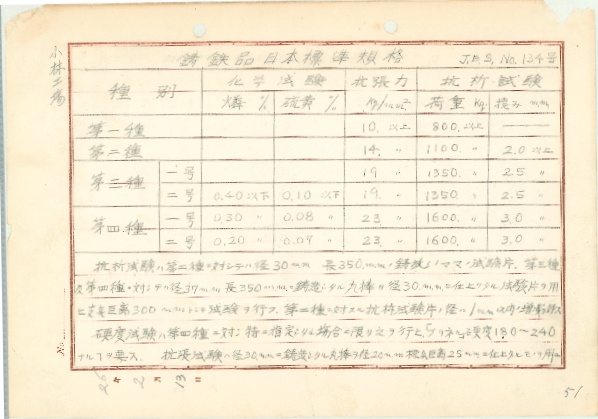 小林工場
鋳鉄品日本標準規格 J.E.S. No. 134号
種別 化学試験 抗張力 抗折試験
燐 % 硫黄 % kg/mm² 荷重 kg 撓み mm
第一種 10. 以上 800. 以上 ——
第二種 14. 〃 1100. 〃 2.0 以上
第三種 一号 19 〃 1350. 〃 2.5 〃
二号 0.40 以下 0.10 以下 19. 〃 1350. 〃 2.5 〃
第四種 一号 0.30 〃 0.08 〃 23. 〃 1600. 〃 3.0 〃
二号 0.20 〃 0.07 〃 23. 〃 1600. 〃 3.0 〃
抗折試験ハ第二種ニ対シテハ径30mm 長350.mm 鋳放シノママノ試験片、第三種
及第四種ニ対シテハ径37mm 長350mmニ鋳造シタル丸棒ヲ径30.mmニ仕上ゲタル試験片ヲ用
ヒ支点距離300mmトシテ試験ヲ行フ 第二種ニ対スル抗折試験片ノ径ハ1mm以内ノ増減
硬度試験ハ第四種ニ対シ特ニ指定シタル場合ニ限リ之ヲ行ヒ ブリネル硬度180〜240
ナルヲ要ス 抗張試験ハ径30.mmニ鋳造シタル丸棒ヲ径20mm 標点距離25mmニ仕上タルモノヲ用
No.
年 2 月 13 日
51